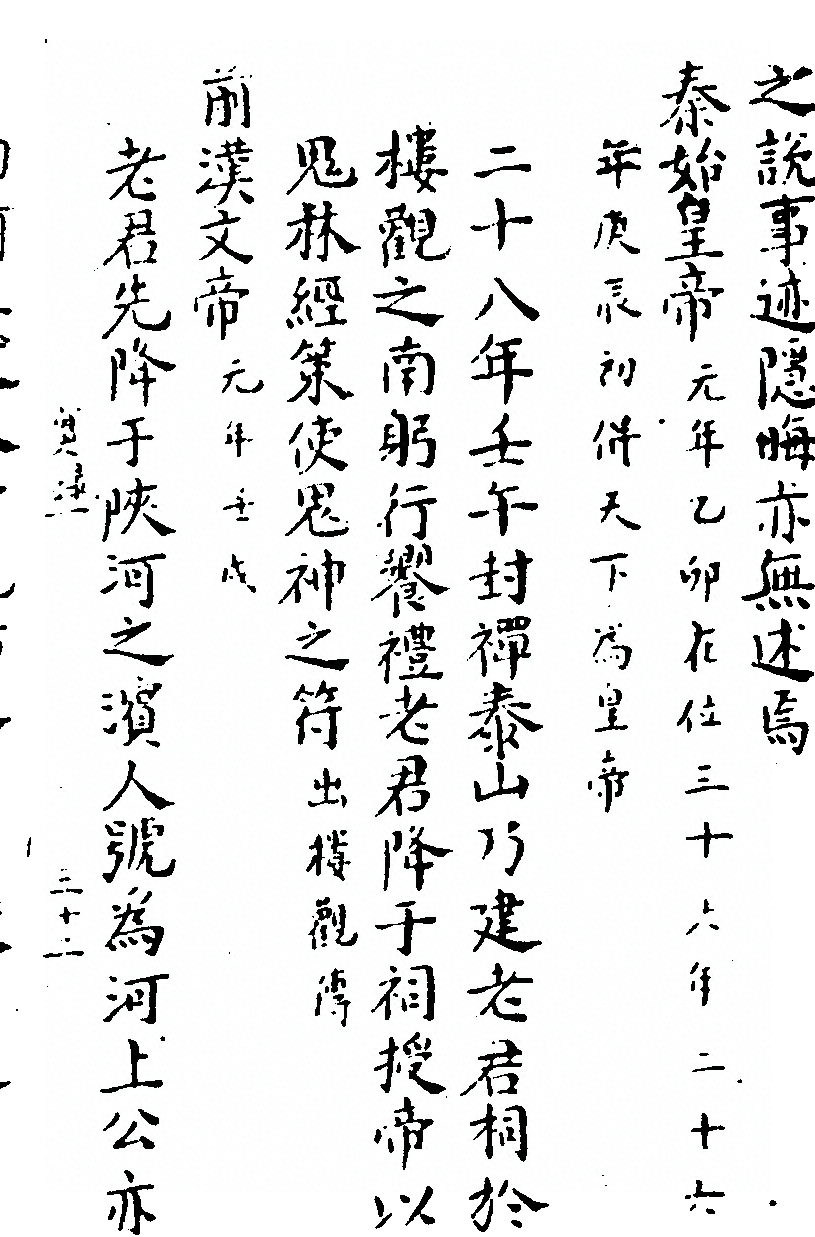 之說事迹隱晦亦無述焉
秦始皇帝元年乙卯在位三十六年二十六
年庚辰初併天下為皇帝
二十八年壬午封禪泰山乃建老君祠於
樓觀之南躬行饗禮老君降于祠授帝以
鬼林經策使鬼神之符出樓觀傳
前漢文帝元年壬戌
老君先降于陝河之濱人號為河上公亦
三十二